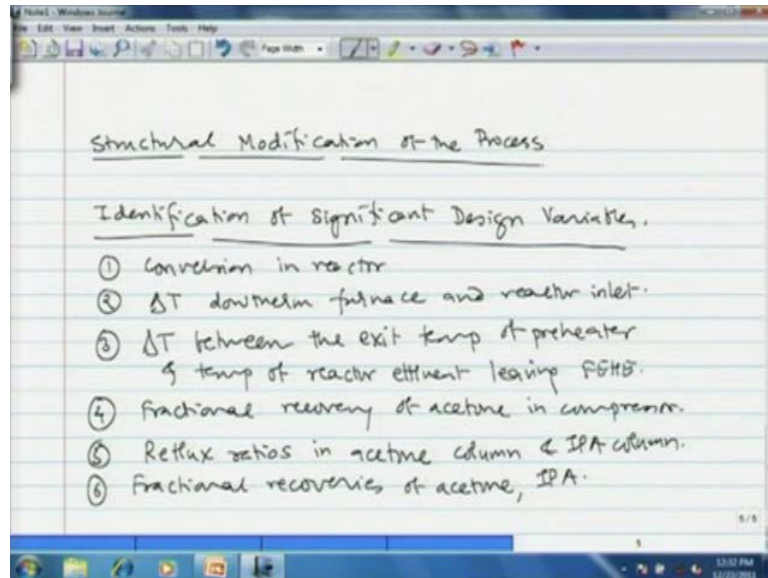 Note1 - Windows Journal
File Edit View Insert Actions Tools Help
Page Width
Structural Modification of the Process
Identification of Significant Design Variables.
① Conversion in reactor
② ΔT dowtherm furnace and reactor inlet.
③ ΔT between the exit temp of preheater
& temp of reactor effluent leaving FEHE.
④ Fractional recovery of acetone in compressor.
⑤ Reflux ratios in acetone column & IPA column.
⑥ Fractional recoveries of acetone, IPA.
5/5
5
12:32 PM
12/23/2011